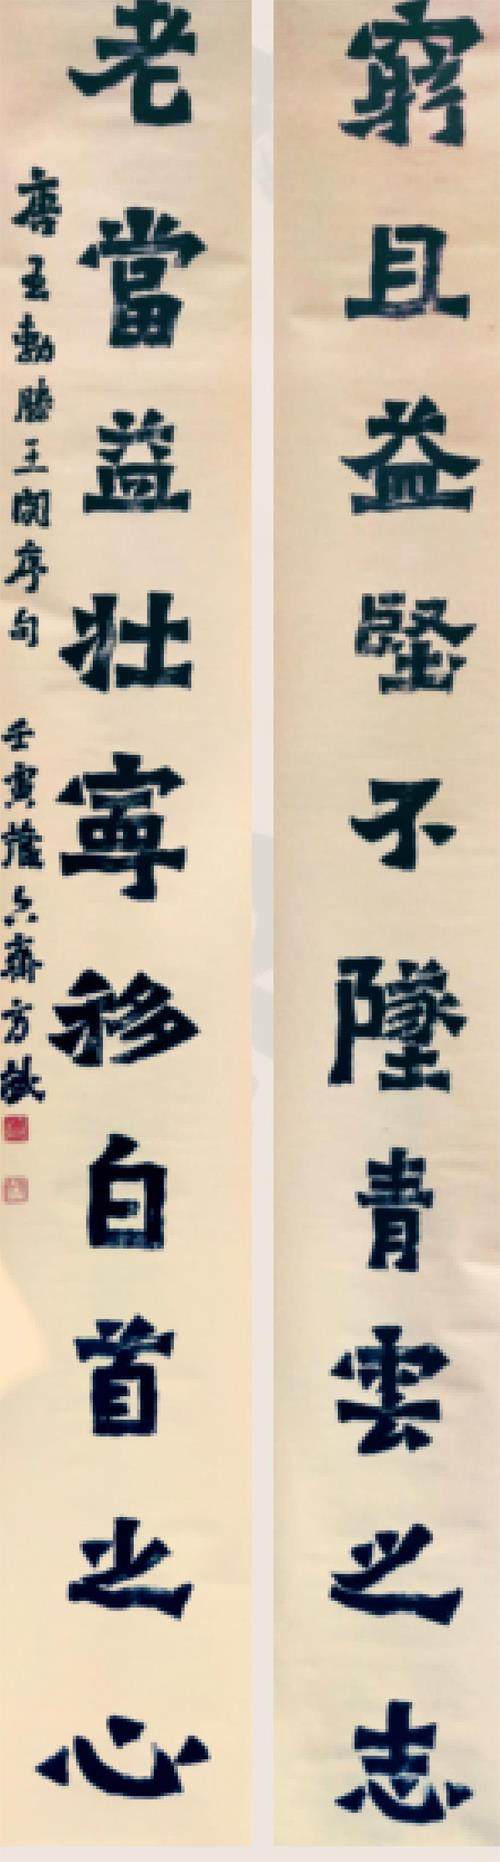 窮且益堅不墜青雲之志
老當益壯寧移白首之心
唐王勃滕王閣序句
壬寅蘐六齋方斌